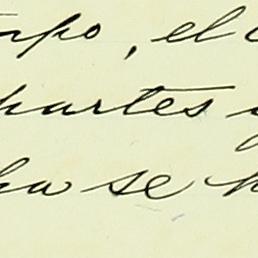 mpo, el
partes
ha se